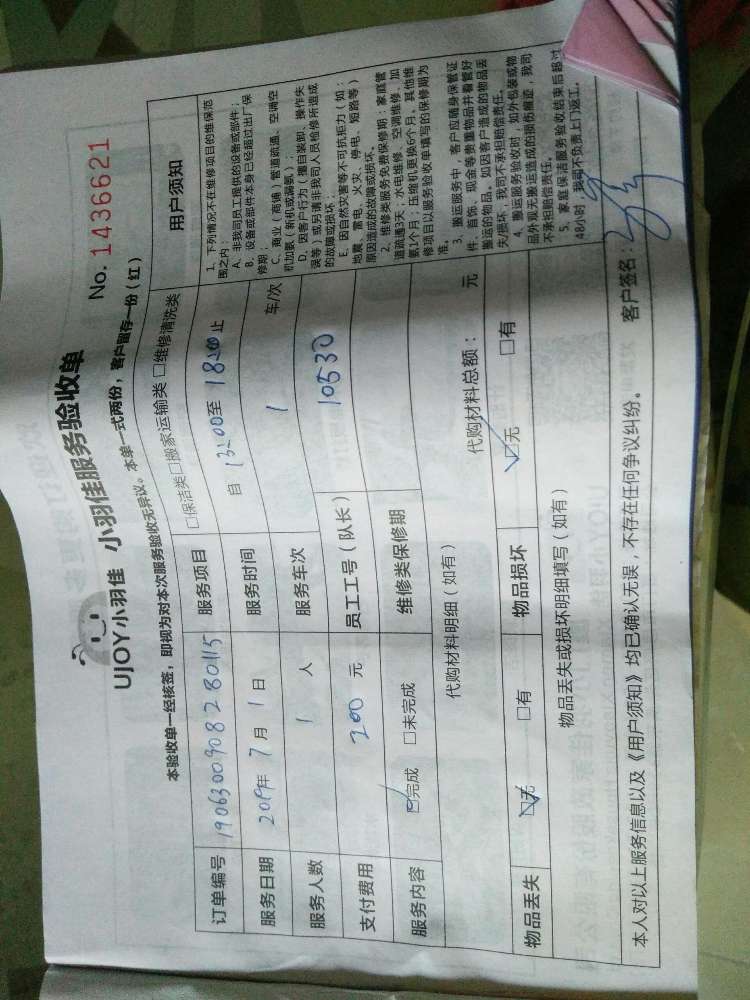 UJOY小羽佳 小羽佳服务验收单
No. 1436621
本验收单一经核签，即视为对本次服务验收无异议。本单一式两份，客户留存一份（红）
订单编号 19063009082 80115 服务项目 □保洁类□搬家运输类 □维修清洗类
服务日期 2019年 7 月 1 日 服务时间 自 13:00至 18:00止
服务人数 1 人 服务车次 1 车/次
支付费用 200 元 员工工号（队长） 10530
服务内容 ☑完成 □未完成 维修类保修期
代购材料明细（如有） 代购材料总额： 元
物品丢失 ☑无 □有 物品损坏 ☑无 □有
物品丢失或损坏明细填写（如有）
用户须知
1、下列情况不在维修项目的维保范
围之内：
A、非我司员工提供的设备或部件；
B、设备或部件本身已经超过出厂保
修期；
C、商业（商铺）管道疏通、空调空
机加氨（新机或漏机）；
D、因客户行为（擅自装卸、操作失
误等）或另请非我司人员检修所造成
的故障或损坏；
E、因自然灾害等不可抗拒力（如：
地震、雷电、火灾、停电、短路等）
原因造成的故障或损坏。
2、维修类服务免费保修期：家庭管
道疏通3天；水电维修、空调维修、加
氨1个月；压缩机更换6个月，其他维
修项目以服务验收单填写的保修期为
准。
3、搬运服务中，客户应随身保管证
件、首饰、现金等贵重物品并看管好
搬运的物品。如因客户造成的物品丢
失/损坏，我司不承担赔偿责任。
4、搬运服务验收时，如外包装或物
品外观无搬运造成的损伤痕迹，我司
不承担赔偿责任。
5、家庭保洁服务验收结束后超过
48小时，我司不负责上门返工。
本人对以上服务信息以及《用户须知》均已确认无误，不存在任何争议纠纷。 客户签名：